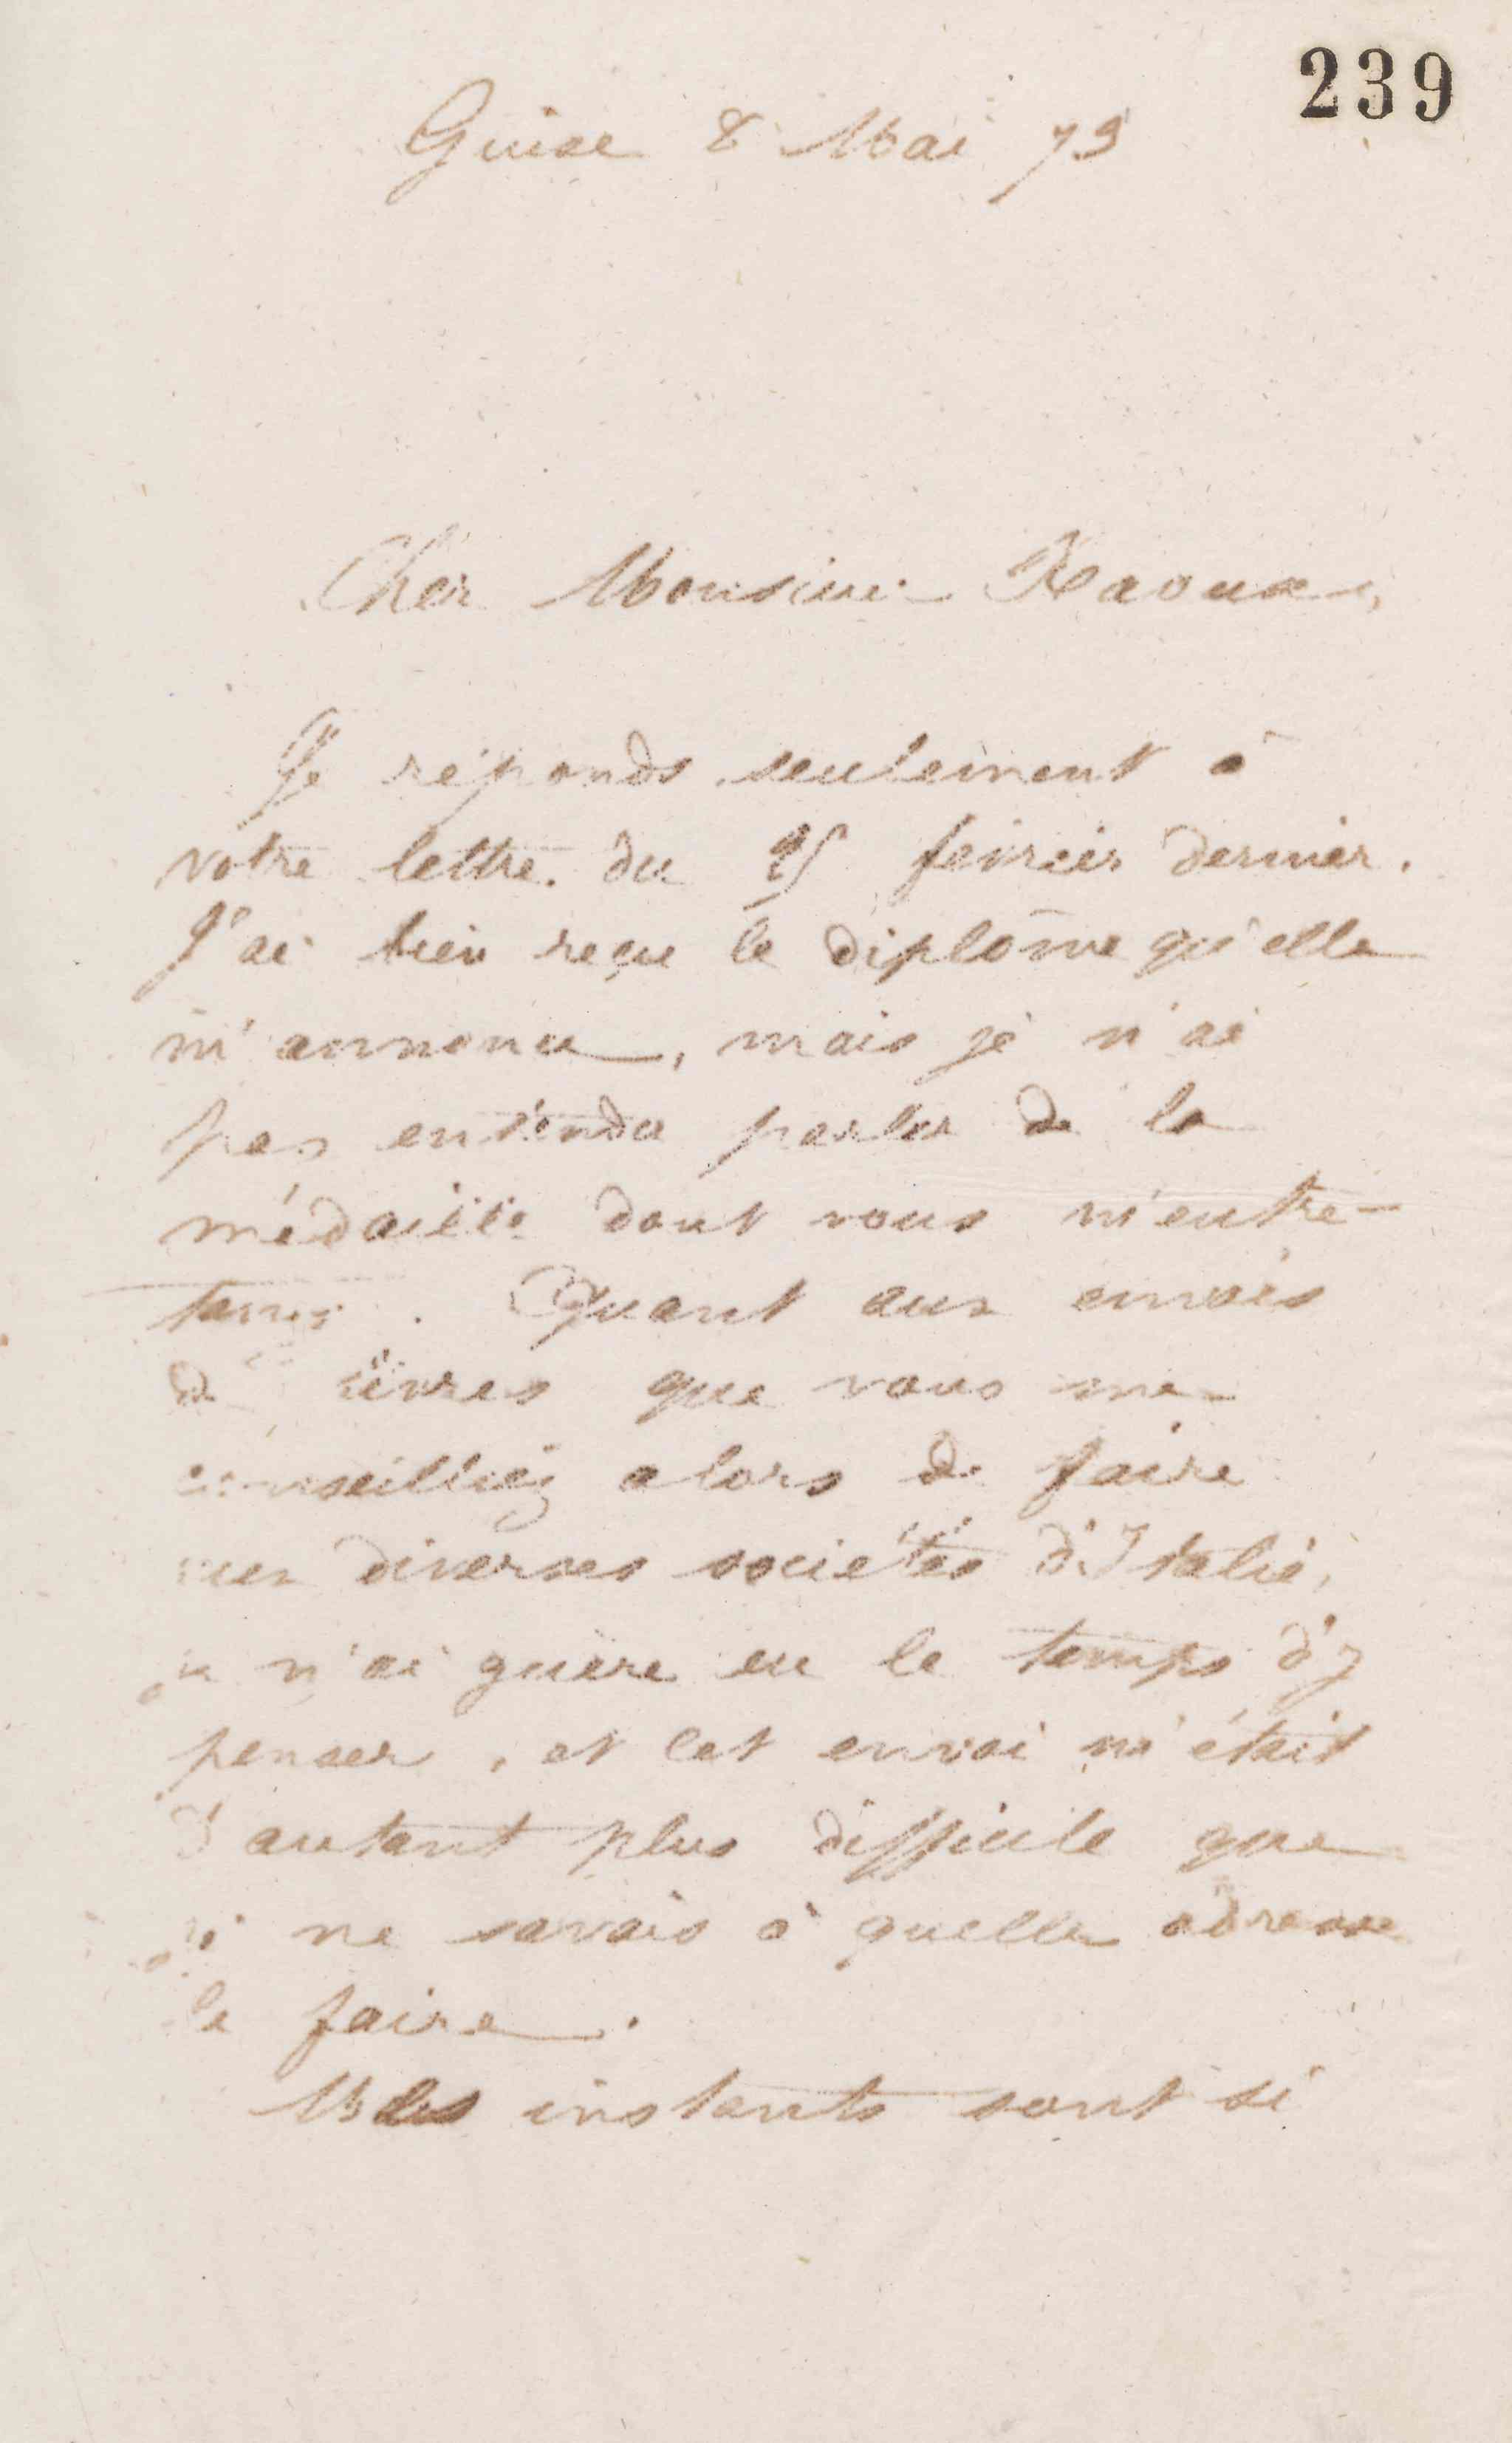 239
Guise 8 Mai 79
Cher Monsieur Raoux,
Je réponds seulement à
votre lettre du 25 février dernier.
J'ai bien reçu le diplôme qu'elle
m'annonce, mais je n'ai
pas entendu parler de la
médaille dont vous m'entre-
teniez. Quant aux envois
de livres que vous me
conseilliez alors de faire
aux diverses sociétés d'Italie,
je n'ai guère eu le temps d'y
penser, et cet envoi m'était
d'autant plus difficile que
je ne savais à quelle adresse
le faire.
Mes instants sont si